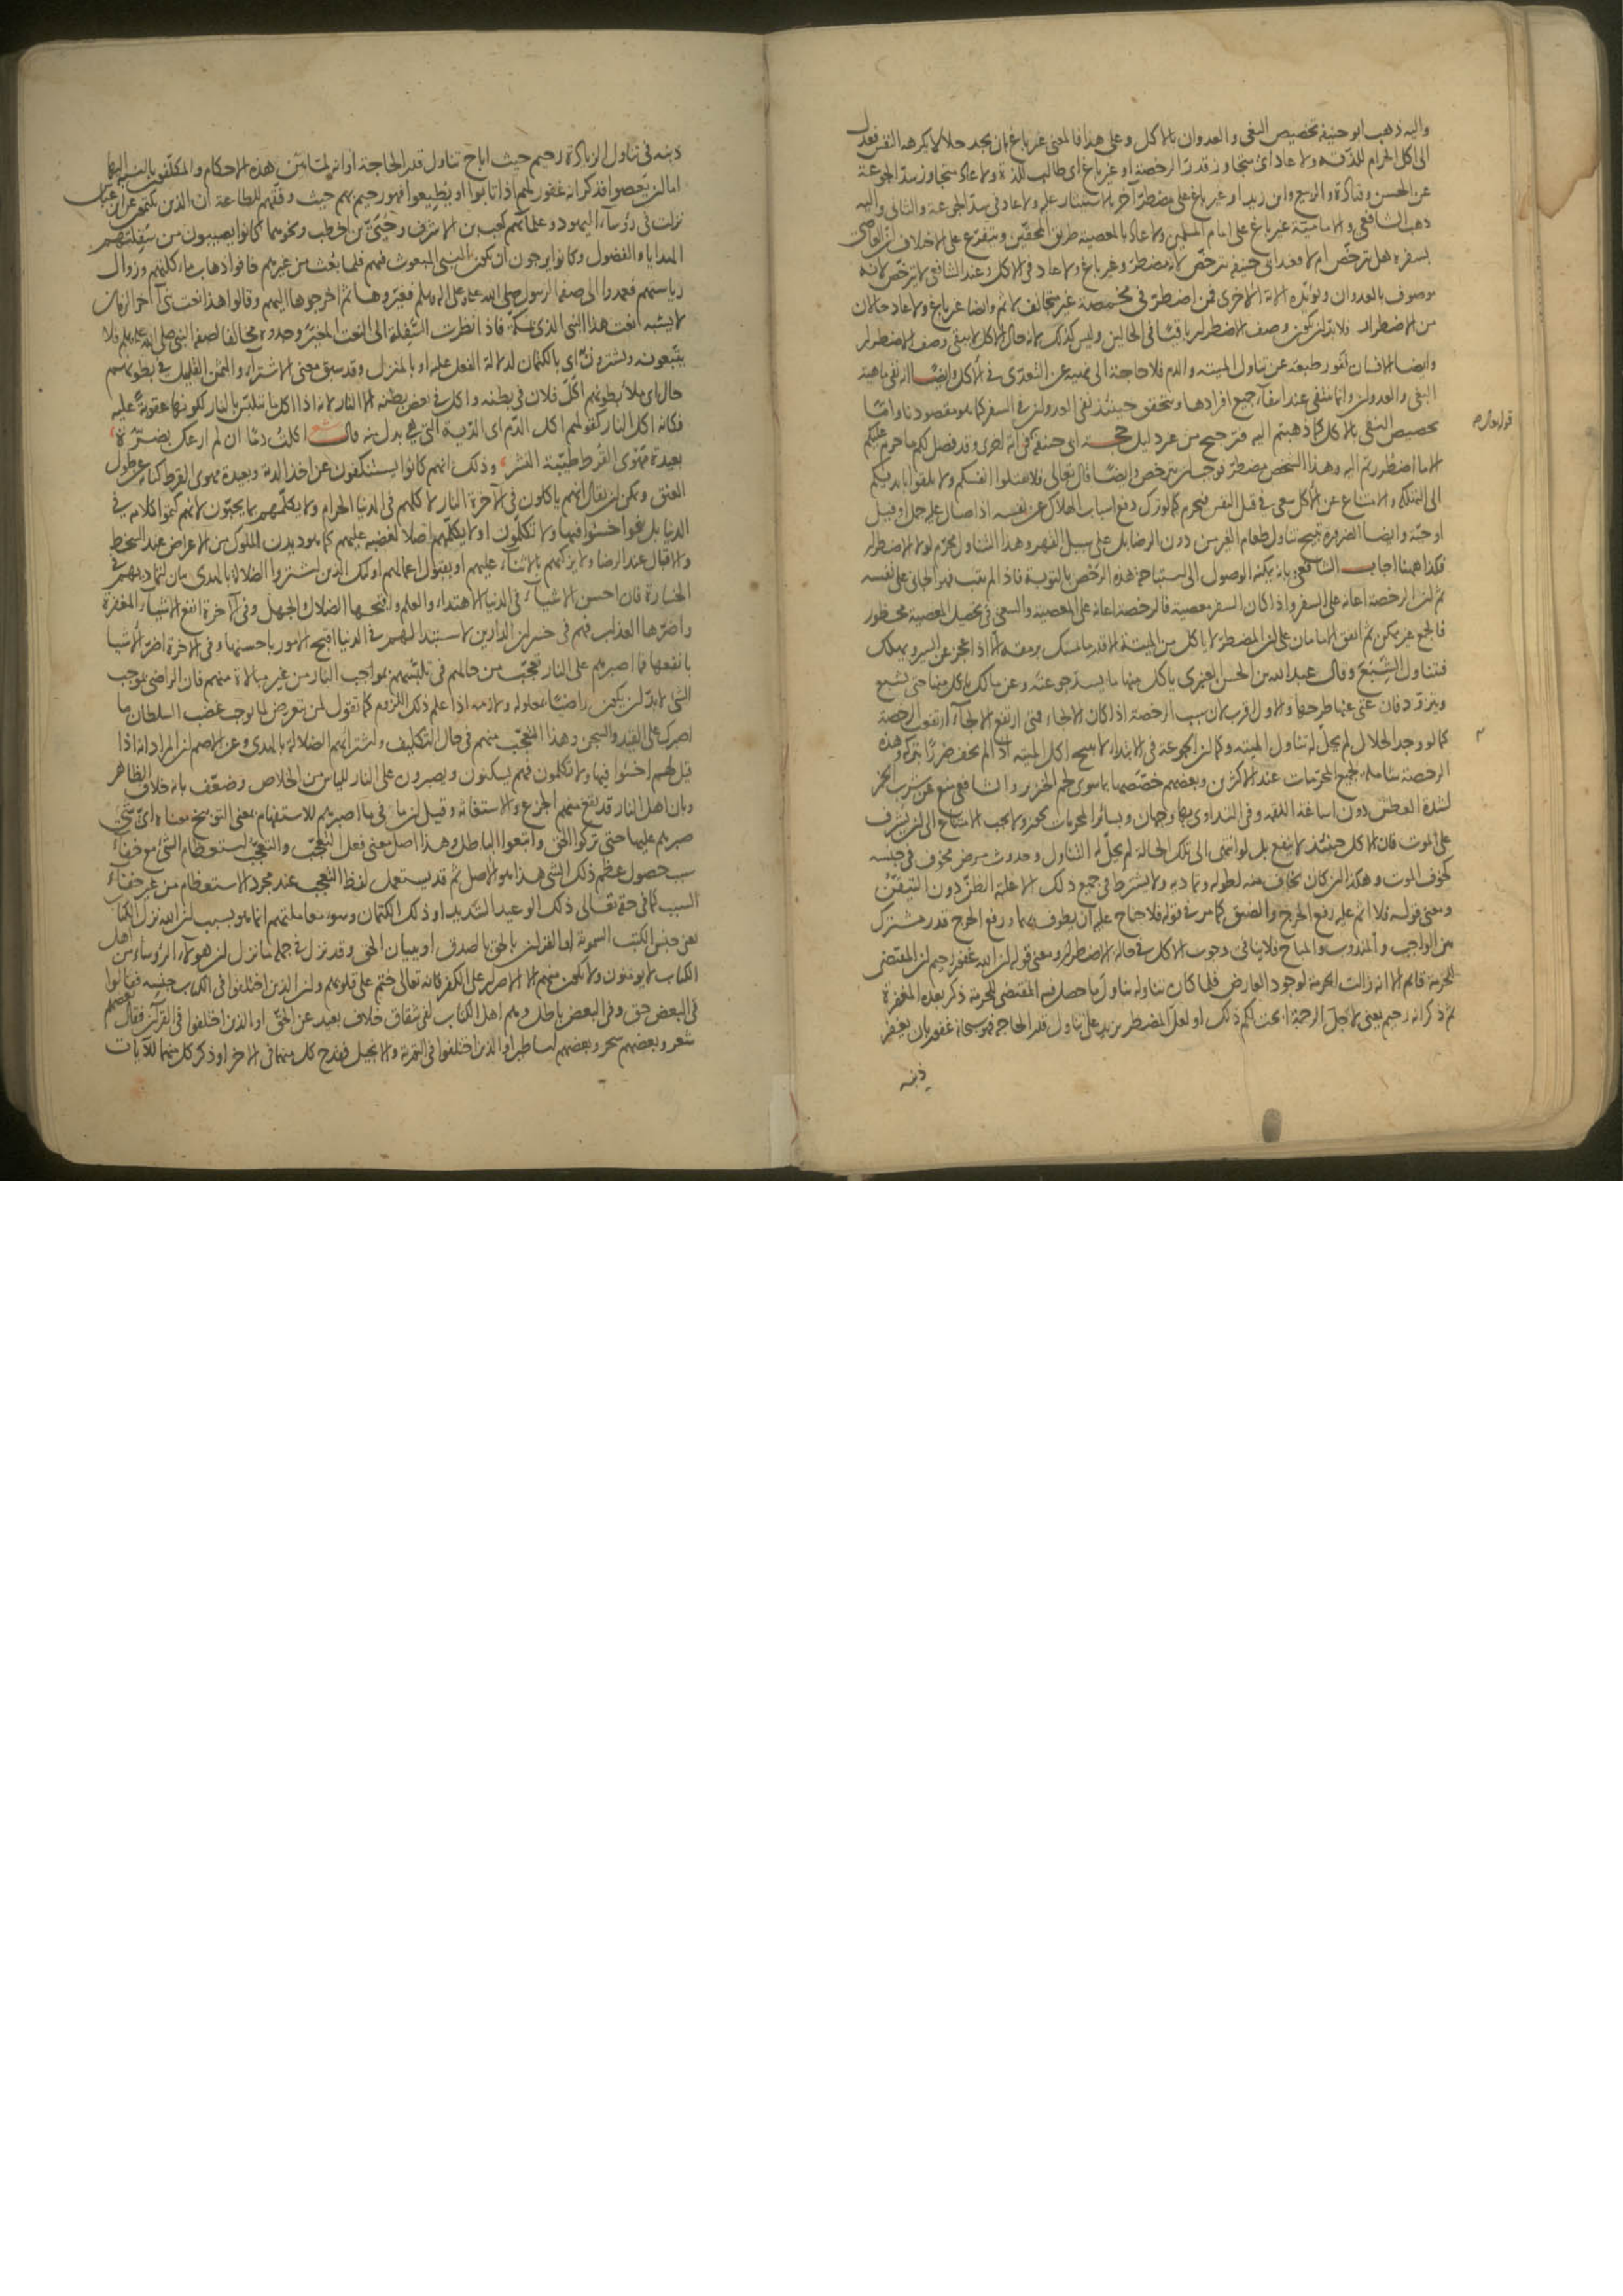 واليه ذهب ابو حنيفة تخصيص البغى والعدوان بالاكل وعلى هذا فالمعنى غير باغ بان يجد حلالا يكرهه النفس فعدل
الى اكل الحرام للذته ولا عاد اى متجاوز قدر الرخصة او غير باغ اى طالب للذة ولا عاد متجاوز سد الجوعة
عن الحسن وقتادة والربيع وابن زيد او غير باغ على مضطر آخر بالاستيثار عليه ولا عاد فى سد الجوعة والثانى واليه
ذهب الشافعى والامامية غير باغ على امام المسلمين ولا عاد بالمعصية طريق المحقين ويتفرع على الاختلاف ان العاصى
بسفره هل يترخص ام لا فعند ابى حنيفة يترخص لانه مضطر وغير باغ ولا عاد فى الاكل وعند الشافعى لا يترخص لانه
موصوف بالعدوان ويؤيده الاية الاخرى فمن اضطر فى مخمصة غير متجانف لاثم وايضا غير باغ ولا عاد حالان
من الاضطرار فلا بد ان يكون وصف الاضطرار باقيا فى الحالين وليس كذلك لانه حال الاكل لا يبقى وصف الاضطرار
وايضا الانسان نفور طبيعته عن تناول الميتة والدم فلا حاجة الى نهيه عن التعدى فى الاكل وايضا انه نفى ماهية
البغى والعدوان وانما تنتفى عند انتفاء جميع افرادها ويتحقق حينئذ نفى العدوان فى السفر كما هو مقصودنا واما
تخصيص النفى بالاكل كما ذهبتم اليه فترجيح من غير دليل حجة ابى حنيفة قوله فى آية اخرى وقد فصل لكم ما حرم عليكم
الا ما اضطررتم اليه وهذا الشخص مضطر فوجب ان يترخص وايضا قال تعالى ولا تقتلوا انفسكم ولا تلقوا بايديكم
الى التهلكة والامتناع عن الاكل سعى فى قتل النفس فيحرم كما لو ترك دفع اسباب الهلاك عن نفسه اذا صال عليه جمل او فيل
او حية وايضا الضرورة تبيح تناول طعام الغير من دون الرضا بل على سبيل القهر وهذا التناول يحرم لولا الاضطرار
فكذا ههنا اجاب الشافعى بانه يمكنه الوصول الى استباحة هذه الرخص بالتوبة فاذا لم يتب فهو الجانى على نفسه
ثم ان الرخصة اعانة على السفر واذا كان السفر معصية فالرخصة اعانة على المعصية والسعى فى تحصيل المعصية محظور
فالجمع غير ممكن ثم اتفق الامامان على ان المضطر لا ياكل من الميتة الا قدر ما يمسك برمقه الا اذا عجز عن السير ويهلك
فتناول الشبع وقال عبد الله بن الحسن العنبرى ياكل منها ما يسد جوعته وعن مالك ياكل منها حتى يشبع
ويتزود فان غنى عنها طرحها والاول اقرب لان سبب الرخصة اذا كان الالجاء فمتى ارتفع الالجاء ارتفعت الرخصة
كما لو وجد الحلال لم يحل له تناول الميتة وكما ان الجوعة فى الابتداء لا تبيح اكل الميتة اذا لم يخف ضررا بتركه وهذه
الرخصة شاملة لجميع المحرمات عند الاكثرين وبعضهم خصصها بما سوى لحم الخنزير والشافعى منع من شرب الخمر
لشدة العطش دون اساغة اللقمة وفى التداوى بها وجهان وبسائر المحرمات يجوز ولا يجب الامتناع الى ان يشرف
على الموت فان الاكل حينئذ لا ينفع بل لو انتهى الى تلك الحالة لم يحل له التناول وحدوث مرض مخوف فى جنسه
كخوف الموت وهكذا ان كان يخاف منه لطوله وتماديه ولا يشترط فى جميع ذلك الا غلبة الظن دون التيقن
ومعنى قوله فلا اثم عليه رفع الحرج والضيق كما مر فى قوله فلا جناح عليه ان يطوف بهما ورفع الحرج قدر مشترك
من الواجب والمندوب والمباح فلا ينافى وجوب الاكل فى حالة الاضطرار ومعنى قوله ان الله غفور رحيم ان المقتضى
للحرمة قايم الا انه زالت الحرمة لوجود العارض فلما كان تناوله تناول ما حصل فيه المقتضى للحرمة ذكر بعده المغفرة
ثم ذكر انه رحيم يعنى لاجل الرحمة ابحت لكم ذلك او لعل المضطر يزيد على تناول قدر الحاجة فهو سبحانه غفور بان يغفر
ذنبه
قوله تعالى
ذنبه فى تناول الزيادة رحيم حيث اباح تناول قدر الحاجة او انه لما بين هذه الاحكام والمكلفون بالنسبة اليها
اما ان يعصوا فذكر انه غفور لهم اذا تابوا او يطيعوا فهو رحيم بهم حيث وفقهم للطاعة ان الذين يكتمون عن ابن عباس
نزلت فى رؤساء اليهود وعلمائهم كعب بن الاشرف وحيى بن اخطب ونحوهما كانوا يصيبون من سفلتهم
الهدايا والفضول وكانوا يرجون ان يكون النبى المبعوث فيهم فلما بعث من غيرهم خافوا ذهاب مأكلتهم وزوال
رياستهم فعمدوا الى صفة الرسول صلى الله عليه وعلى اله وسلم فغيروها ثم اخرجوها اليهم وقالوا هذا نعت نبى آخر الزمان
لا يشبه نعت هذا النبى الذى بمكة فاذا نظرت السفلة الى النعت المغير وجدوه مخالفا لصفة النبى صلى الله عليه وسلم فلا
يتبعونه ويشترون به اى بالكتمان لدلالة الفعل عليه او بالمنزل وقد سبق معنى الاشتراء والثمن القليل فى بطونهم
حال اى ملأ بطونهم اكل فلان فى بطنه واكل فى بعض بطنه الا النار لانه اذا اكل ما يتلبس بالنار لكونها عقوبة عليه
فكانه اكل النار كقولهم اكل الدم اى الدية التى هى بدل منه قال شعر اكلت دما ان لم ارعك بضرة
بعيدة مهوى القرط طيبة النشر وذلك انهم كانوا يستنكفون عن اخذ الدية وبعيدة مهوى القرط كناية عن طول
العنق ويمكن ان يقال انهم ياكلون فى الآخرة النار لاكلهم فى الدنيا الحرام ولا يكلمهم بما يحبون لانهم كتموا كلامه فى
الدنيا بل بنحو اخسئوا فيها ولا تكلمون او لا يكلمهم اصلا لغضبه عليهم كما هو ديدن الملوك من الاعراض عند السخط
والاقبال عند الرضا ولا يزكيهم بالثناء عليهم او بقبول اعمالهم اولئك الذين اشتروا الضلالة بالهدى بيان لتماديهم فى
الخسارة فان احسن الاشياء فى الدنيا الاهتداء والعلم واقبحها الضلال والجهل وفى الآخرة انفع الاشياء المغفرة
واضرها العذاب فهم فى خسران الدارين لاستبدالهم فى الدنيا اقبح الامور باحسنها وفى الاخرة اضر الاشيا
بانفعها فما اصبرهم على النار تعجب من حالهم فى تلبسهم بمواجب النار من غير مبالاة منهم فان الراضى بموجب
الشئ لا بد ان يكون راضيا بمعلوله ولازمه اذا علم ذلك اللزوم كما تقول لمن تعرض لما يوجب غضب السلطان ما
اصبرك على القيد والسجن وهذا التعجب منهم فى حال التكليف واشترائهم الضلالة بالهدى وعن الاصم ان المراد انه اذا
قيل لهم اخسئوا فيها ولا تكلمون فهم يسكتون ويصبرون على النار للياس من الخلاص وضعف بانه خلاف الظاهر
وبان اهل النار قد يقع منهم الجزع والاستغاثة وقيل ان ما فى ما اصبرهم للاستفهام بمعنى التوبيخ معناه اى شئ
صبرهم عليها حتى تركوا الحق واتبعوا الباطل وهذا اصل معنى فعل التعجب والتعجب استعظام الشئ مع خفاء
سبب حصول عظم ذلك الشئ هذا هو الاصل ثم قد يستعمل لفظ التعجب عند مجرد الاستعظام من غير خفاء
السبب كما فى حقه تعالى ذلك الوعيد الشديد او ذلك الكتمان وسوء معاملتهم انما هو بسبب ان الله نزل الكتاب
يعنى جنس الكتب السموية او القران بالحق بالصدق او ببيان الحق وقد نزل فى جملة ما نزل ان هؤلاء الرؤساء من اهل
الكتاب لا يؤمنون ولا يكون منهم الا الاصرار على الكفر فانه تعالى ختم على قلوبهم وان الذين اختلفوا فى الكتاب جنسه فقالوا
فى البعض حق وفى البعض باطل وهم اهل الكتاب لفى شقاق خلاف بعيد عن الحق او الذين اختلفوا فى القرآن فقال بعضهم
شعر وبعضهم سحر وبعضهم اساطير او الذين اختلفوا فى التورية والانجيل فقدح كل منهما فى الاخر او ذكر كل منهما للآيات